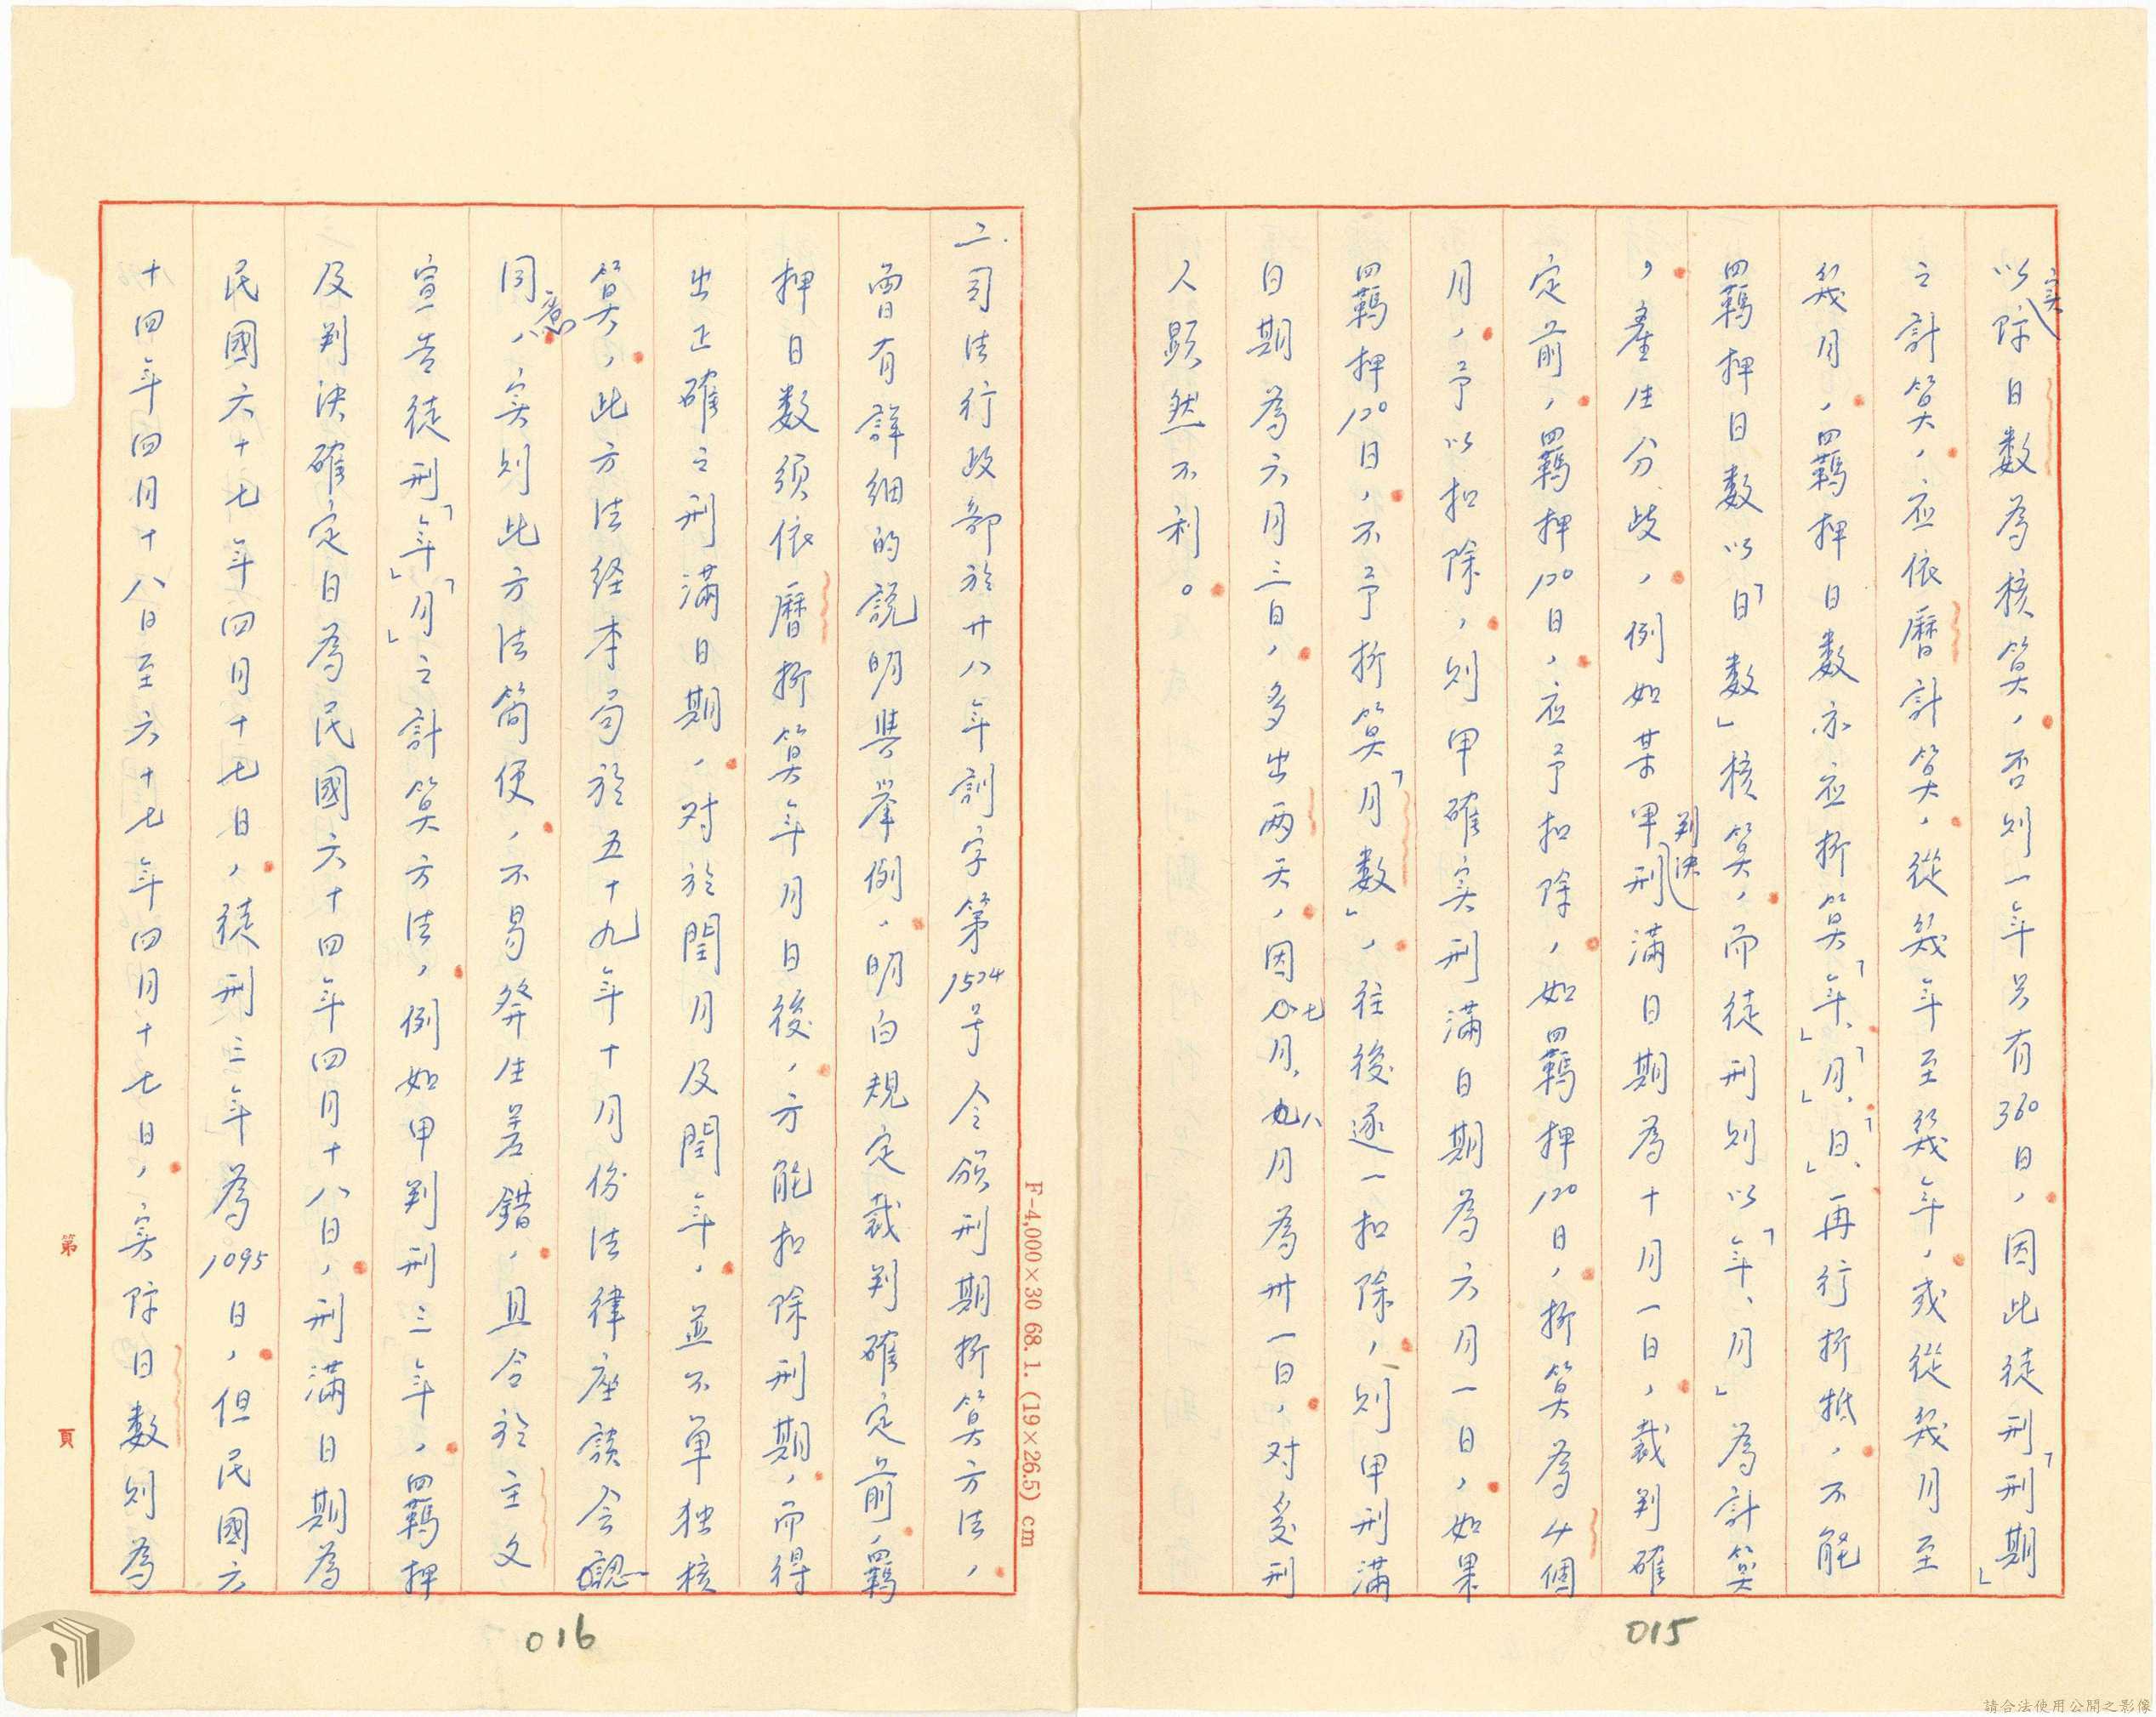 以实际日数為核算，否则一年只有360日，因此徒刑「刑期」
之計算，应依曆計算，從幾年至幾年，或從幾月至
幾月，羈押日数亦应折算「年」、「月」、「日」、再行折抵，不能
羈押日数以「日数」核算，而徒刑则以「年、月」為計算
，產生分歧，例如某甲判決刑滿日期為十月一日，裁判確
定前，羈押120日，应予扣除，如羈押120日，折算為4個
月，予以扣除，则甲確实刑滿日期為六月一日，如果
羈押120日，不予折算「月数」，往後逐一扣除，则甲刑滿
日期為六月三日，多出两天，因七月、八月為卅一日，对受刑
人顯然不利。
015
二.司法行政部於廿八年訓字第1524号令頒刑期折算方法，
曾有詳細的說明與舉例，明白規定裁判確定前，羈
押日数須依曆折算年月日後，方能扣除刑期，而得
出正確之刑滿日期，对於閏月及閏年，並不单独核
算，此方法経本局於五十九年十月份法律座談会認
同意，实则此方法简便，不易發生差錯，且合於主文
宣告徒刑「年」「月」之計算方法，例如甲判刑三年，羈押
及判決確定日為民國六十四年四月十八日，刑滿日期為
民國六十七年四月十七日，徒刑三年為1095日，但民國六
十四年四月十八日至六十七年四月十七日，实际日数则為
016
F-4,000×30 68. 1. (19×26.5) cm
第 頁
請合法使用公開之影像